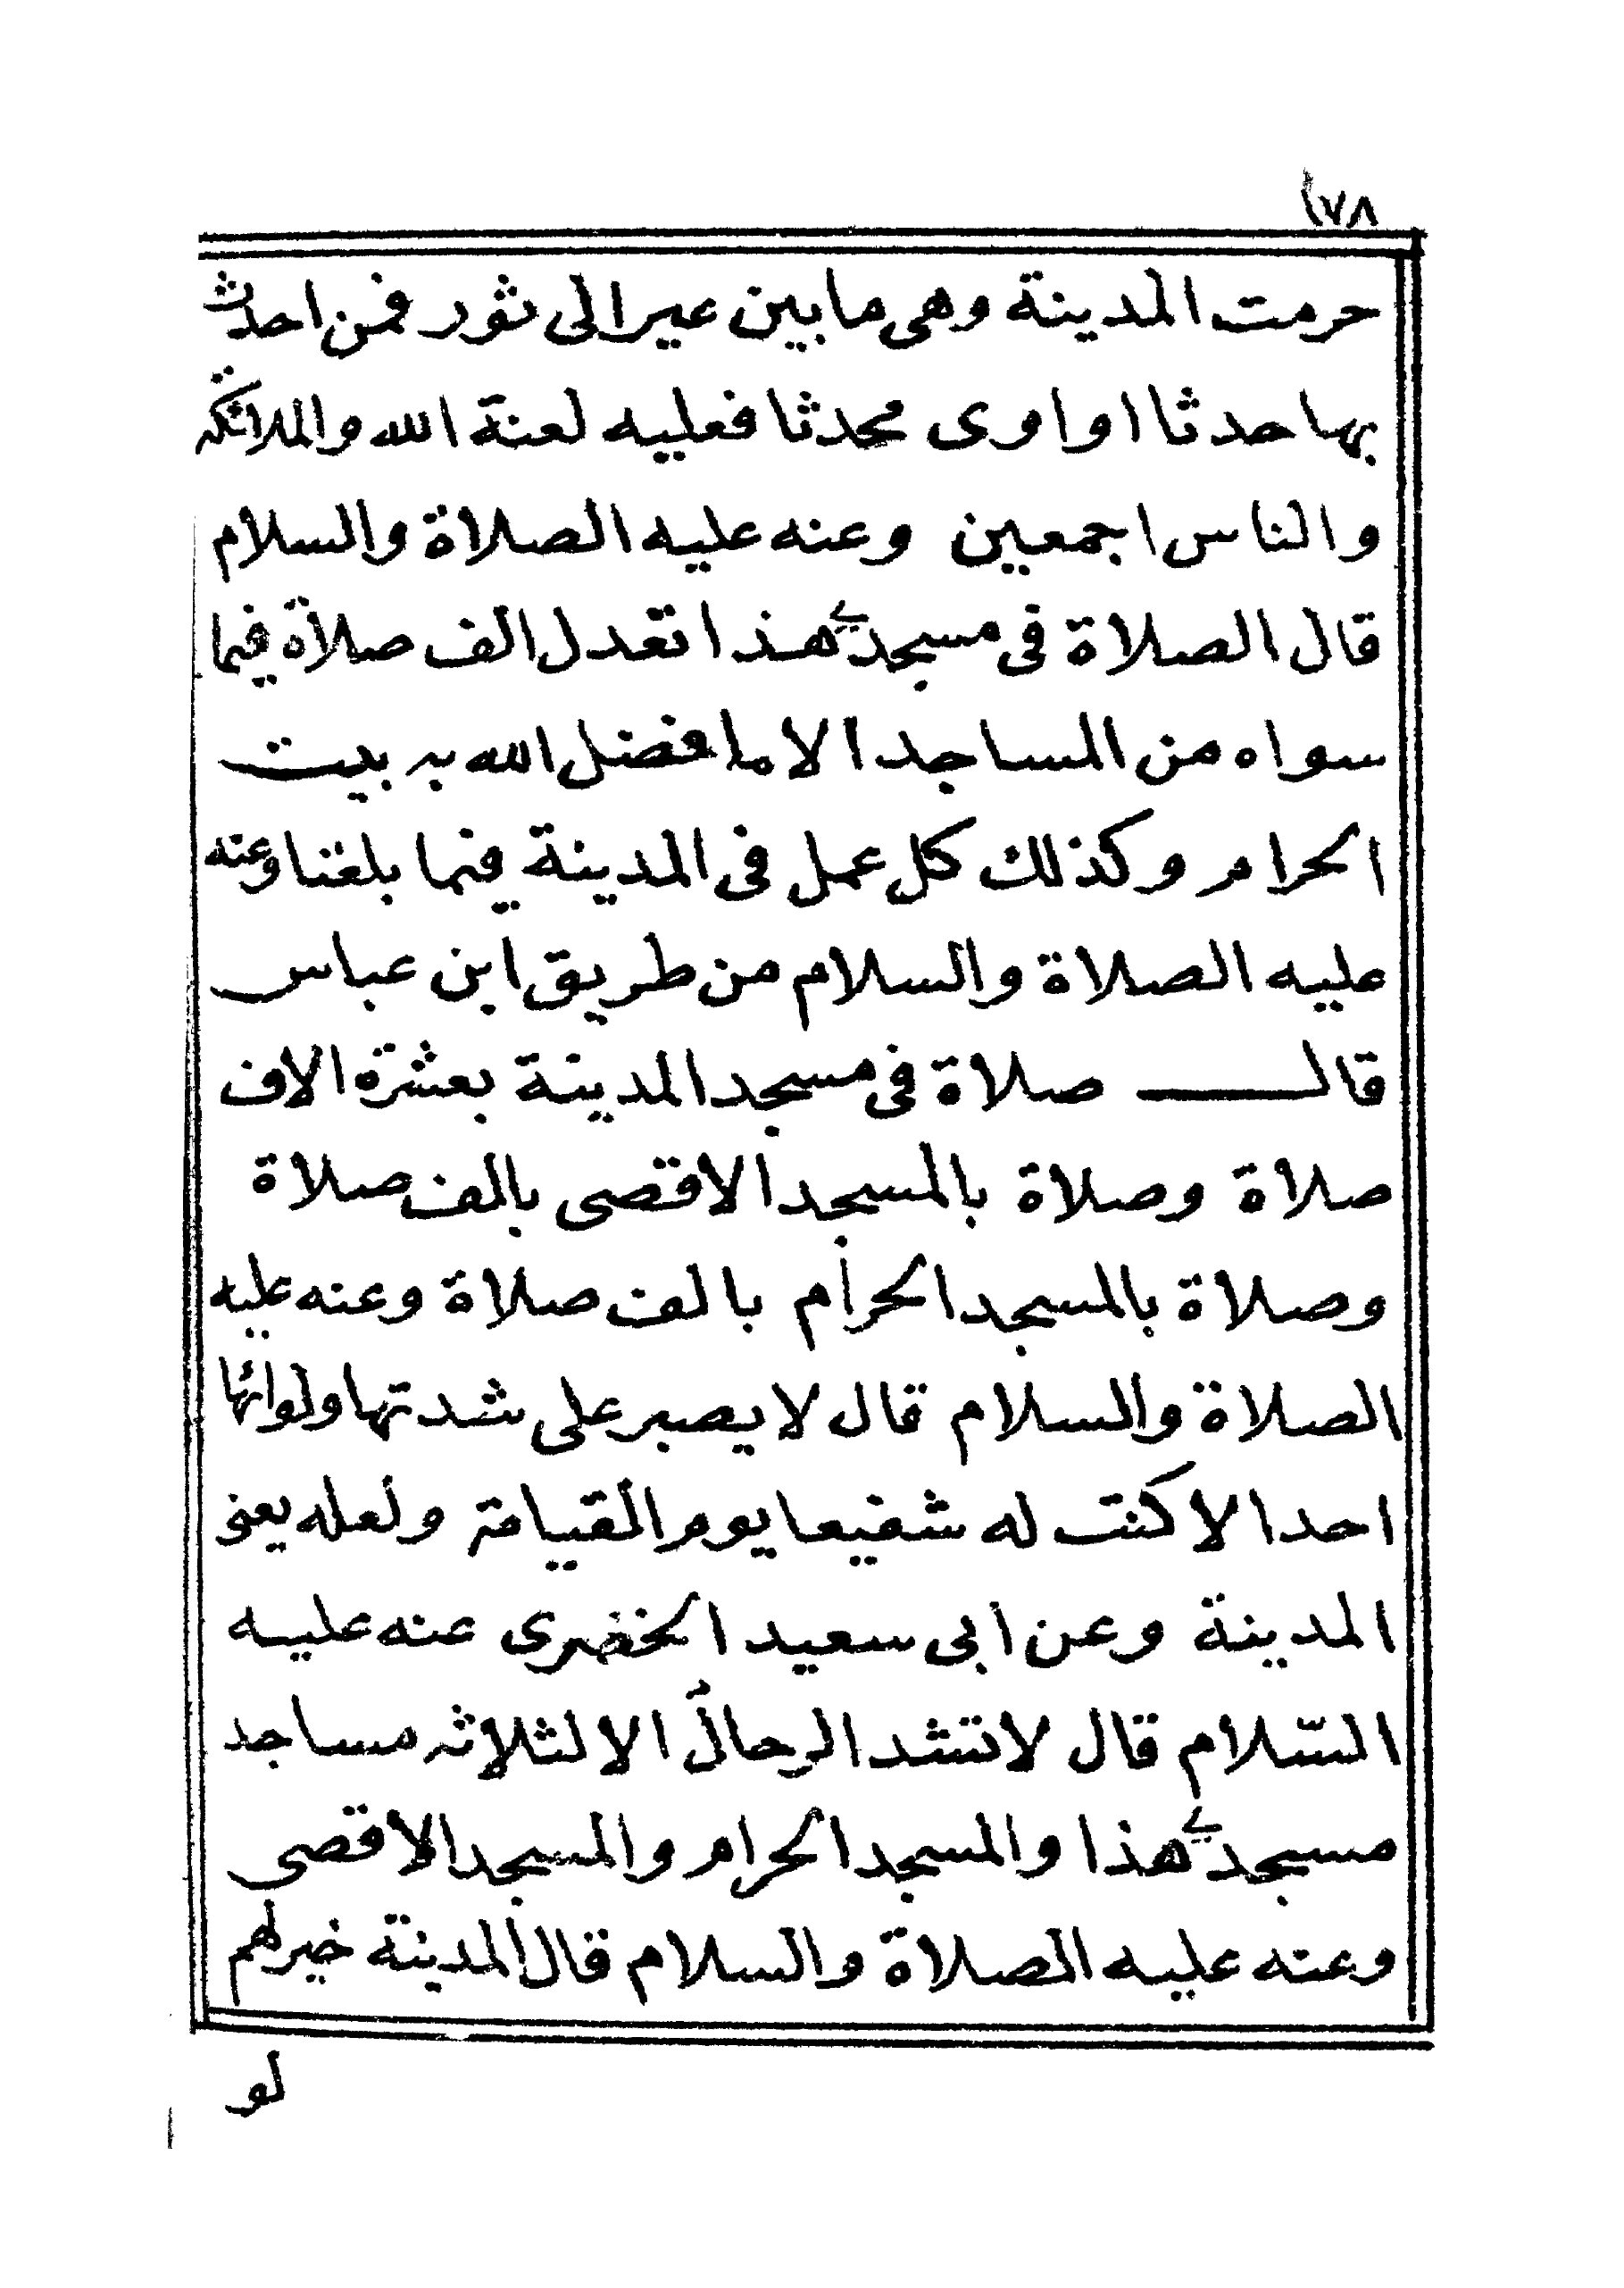 ١٧٨
حرمت المدينة وهى ما بين عير الى ثور فمن احدث
بها حدثا او اوى محدثا فعليه لعنة الله والملائكة
والناس اجمعين وعنه عليه الصلاة والسلام
قال الصلاة فى مسجدي هذا تعدل الف صلاة فيما
سواه من المساجد الا ما فضل الله به بيت
الحرام وكذلك كل عمل فى المدينة فيما بلغنا وعنه
عليه الصلاة والسلام من طريق ابن عباس
قال صلاة فى مسجد المدينة بعشرة الاف
صلاة وصلاة بالمسجد الاقصى بالف صلاة
وصلاة بالمسجد الحرام بالف صلاة وعنه عليه
الصلاة والسلام قال لا يصبر على شدتها ولوائها
احد الا كنت له شفيعا يوم القيامة ولعله يعنى
المدينة وعن ابى سعيد الخضرى عنه عليه
السّلام قال لا تشد الرحالُ الا لثلاثة مساجد
مسجدي هذا والمسجد الحرام والمسجد الاقصى
وعنه عليه الصلاة والسلام قال المدينة خير لهم
لو